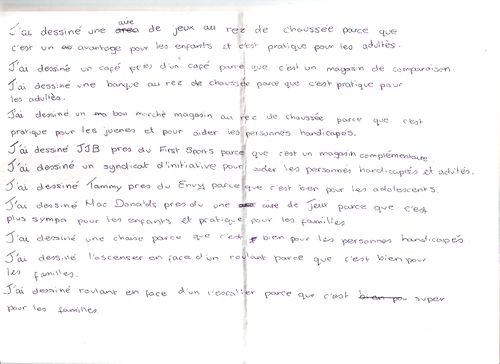 J'ai dessiné une aire de jeux au rez de chaussée parce que
c'est un avantage pour les enfants et c'est pratique pour les adultes.
J'ai dessiné un café près d'un café parce que c'est un magasin de comparaison
J'ai dessiné une banque au rez de chaussée parce que c'est pratique pour
les adultes.
J'ai dessiné un bon marché magasin au rez de chaussée parce que c'est
pratique pour les juenes et pour aider les personnes handicapés.
J'ai dessiné JJB près du First Sports parce que c'est un magasin complémentaire.
J'ai dessiné un syndicat d'initiative pour aider les personnes handicaptés et adultés.
J'ai dessiné Tammy près du Envy parce que c'est bien pour les adolescents.
J'ai dessiné Mac Donalds près du une aire de jeux parce que c'est
plus sympa pour les enfants et pratique pour les familles
J'ai dessiné une chaise parce que c'est bien pour les personnes handicapés
J'ai dessiné l'ascenser en face d'un roulant parce que c'est bien pour
les familles.
J'ai dessiné roulant en face d'un l'escalier parce que c'est super
pour les familles.